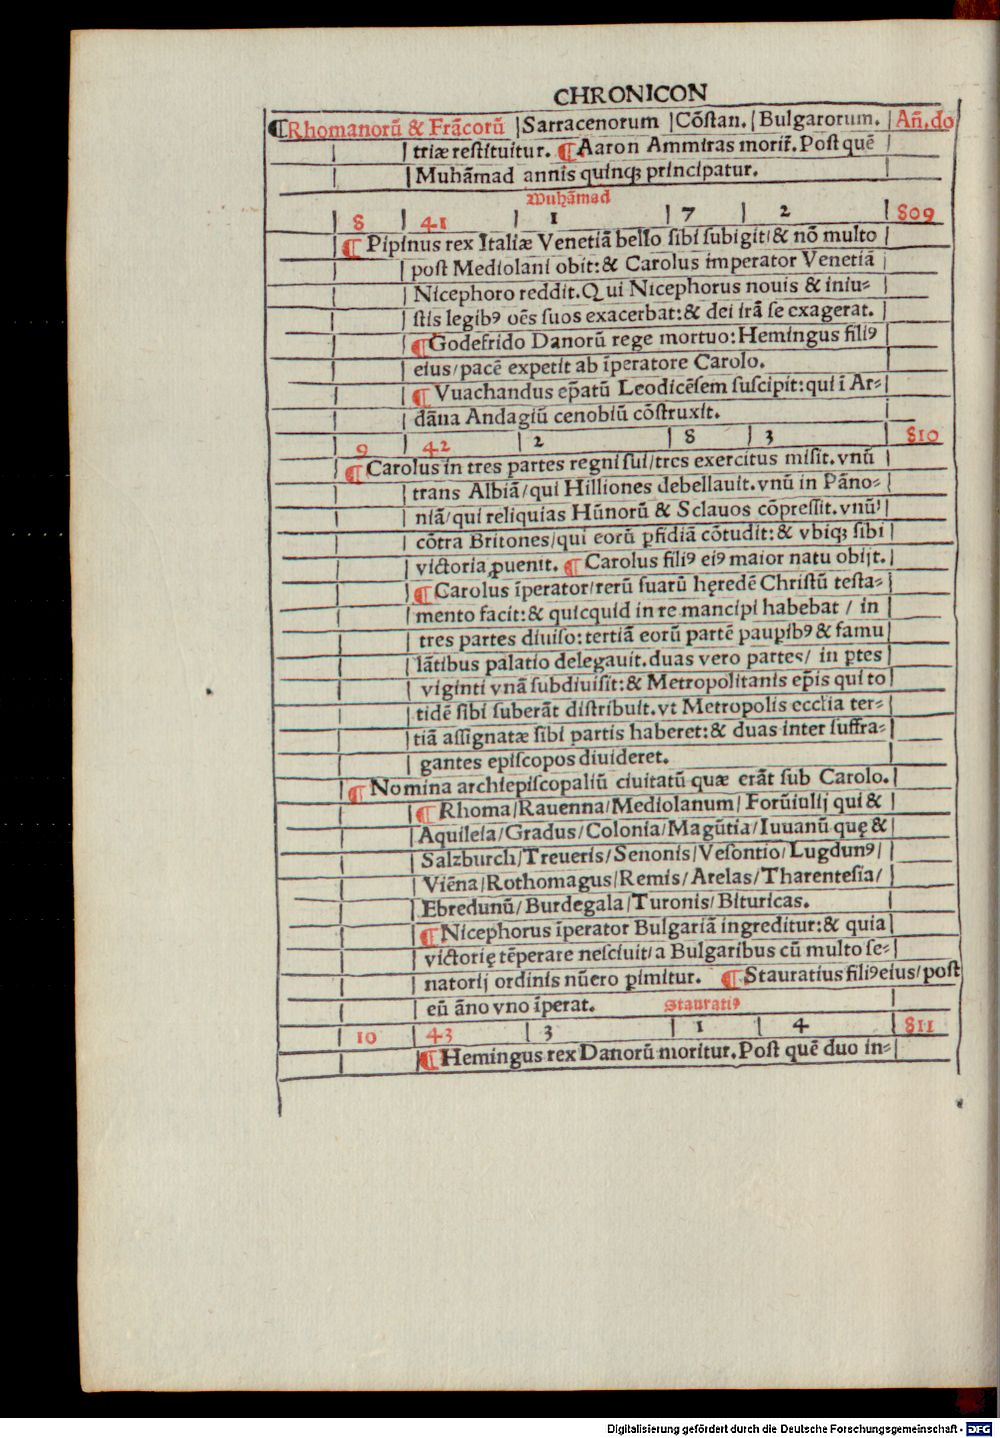 CHRONICON
¶Rhomanorũ & Frãcorũ |Sarracenorum |Cõstan.|Bulgarorum.|Añ.do
triæ restituitur. ¶Aaron Ammiras morit̃.Post quẽ
Muhãmad annis quinqꝫ principatur.
Muhãmad
8 | 41 | 1 | 7 | 2 | 809
¶Pipinus rex Italiæ Venetiã bello sibi subigit/& nõ multo
post Mediolani obit:& Carolus imperator Venetiã
Nicephoro reddit.Qui Nicephorus nouis & iniu⸗
stis legibꝰ oẽs suos exacerbat:& dei irã se exagerat.
¶Godefrido Danorũ rege mortuo:Hemingus filiꝰ
eius/pacẽ expetit ab ĩperatore Carolo.
¶Vuachandus ep̃atũ Leodicẽsem suscipit:qui ĩ Ar⸗
dãna Andagiũ cenobiũ cõstruxit.
9 | 42 | 2 | 8 | 3 | 810
¶Carolus in tres partes regni sui/tres exercitus misit.vnũ
trans Albiã/qui Hilliones debellauit.vnũ in Pãno⸗
niã/qui reliquias Hũnorũ & Sclauos cõpressit.vnũ
cõtra Britones/qui eorũ ꝑfidiã cõtudit:& vbiqꝫ sibi
victoria ꝓuenit. ¶Carolus filiꝰ eiꝰ maior natu obijt.
¶Carolus ĩperator/rerũ suarũ hęredẽ Christũ testa⸗
mento facit:& quicquid in re mancipi habebat / in
tres partes diuiso:tertiã eorũ partẽ paupibꝰ & famu
lãtibus palatio delegauit.duas vero partes/ in ꝑtes
viginti vnã subdiuisit:& Metropolitanis ep̃is qui to
tidẽ sibi suberãt distribuit.vt Metropolis ecclia ter⸗
tiã assignatæ sibi partis haberet:& duas inter suffra⸗
gantes episcopos diuideret.
¶Nomina archiepiscopaliũ ciuitatũ quæ erãt sub Carolo.
¶Rhoma/Rauenna/Mediolanum/Forũiulij qui &
Aquileia/Gradus/Colonia/Magũtia/Iuuanũ quę &
Salzburch/Treueris/Senonis/Vesontio/Lugdunꝰ/
Viẽna/Rothomagus/Remis/Arelas/Tharentesia/
Ebredunũ/Burdegala/Turonis/Bituricas.
¶Nicephorus ĩperator Bulgariã ingreditur:& quia
victorię tẽperare nesciuit/a Bulgaribus cũ multo se⸗
natorij ordinis nũero ꝑimitur. ¶Stauratius filiꝰeius/post
eũ ãno vno ĩperat. Stauratiꝰ
10 | 43 | 3 | 1 | 4 | 811
¶Hemingus rex Danorũ moritur.Post quẽ duo in⸗
Digitalisierung gefördert durch die Deutsche Forschungsgemeinschaft - DFG